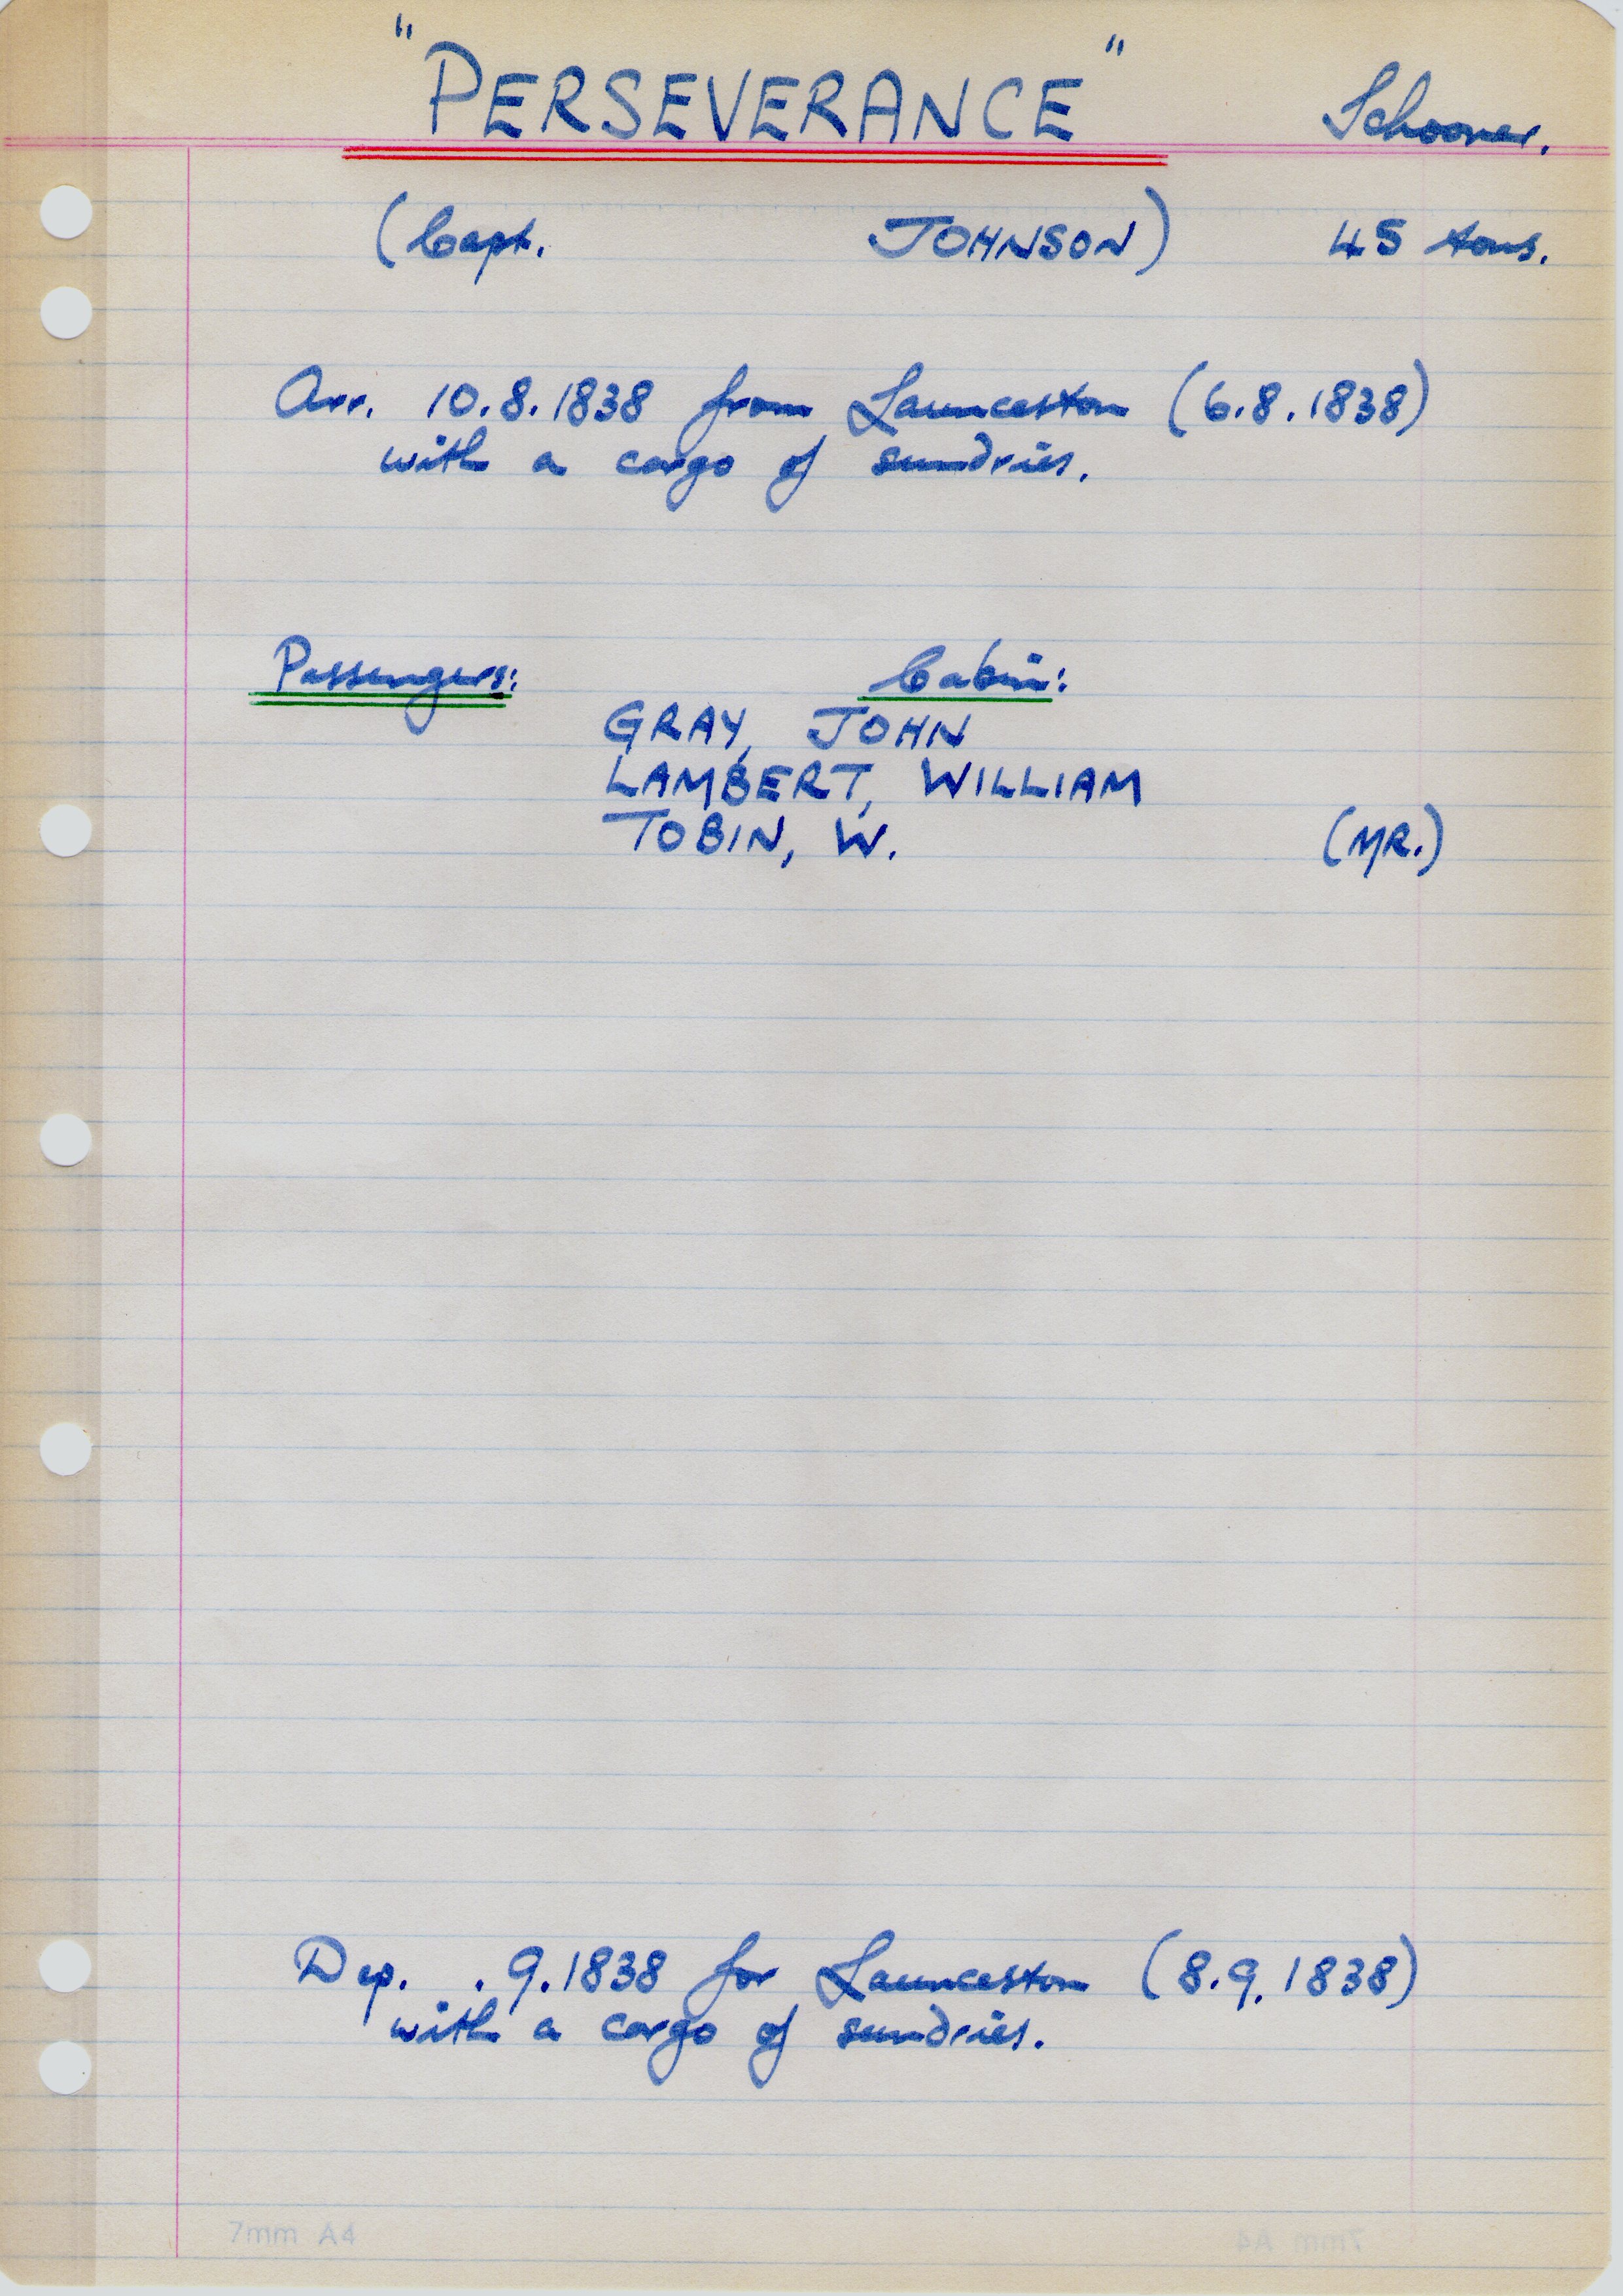 "PERSEVERANCE" Schooner.
(Capt. JOHNSON) 45 tons.
Arr. 10.8.1838 from Launceston (6.8.1838)
with a cargo of sundries.
Passengers: Cabin:
GRAY, JOHN
LAMBERT, WILLIAM
TOBIN, W. (MR.)
Dep. .9.1838 for Launceston (8.9.1838)
with a cargo of sundries.
7mm A4 7mm A4